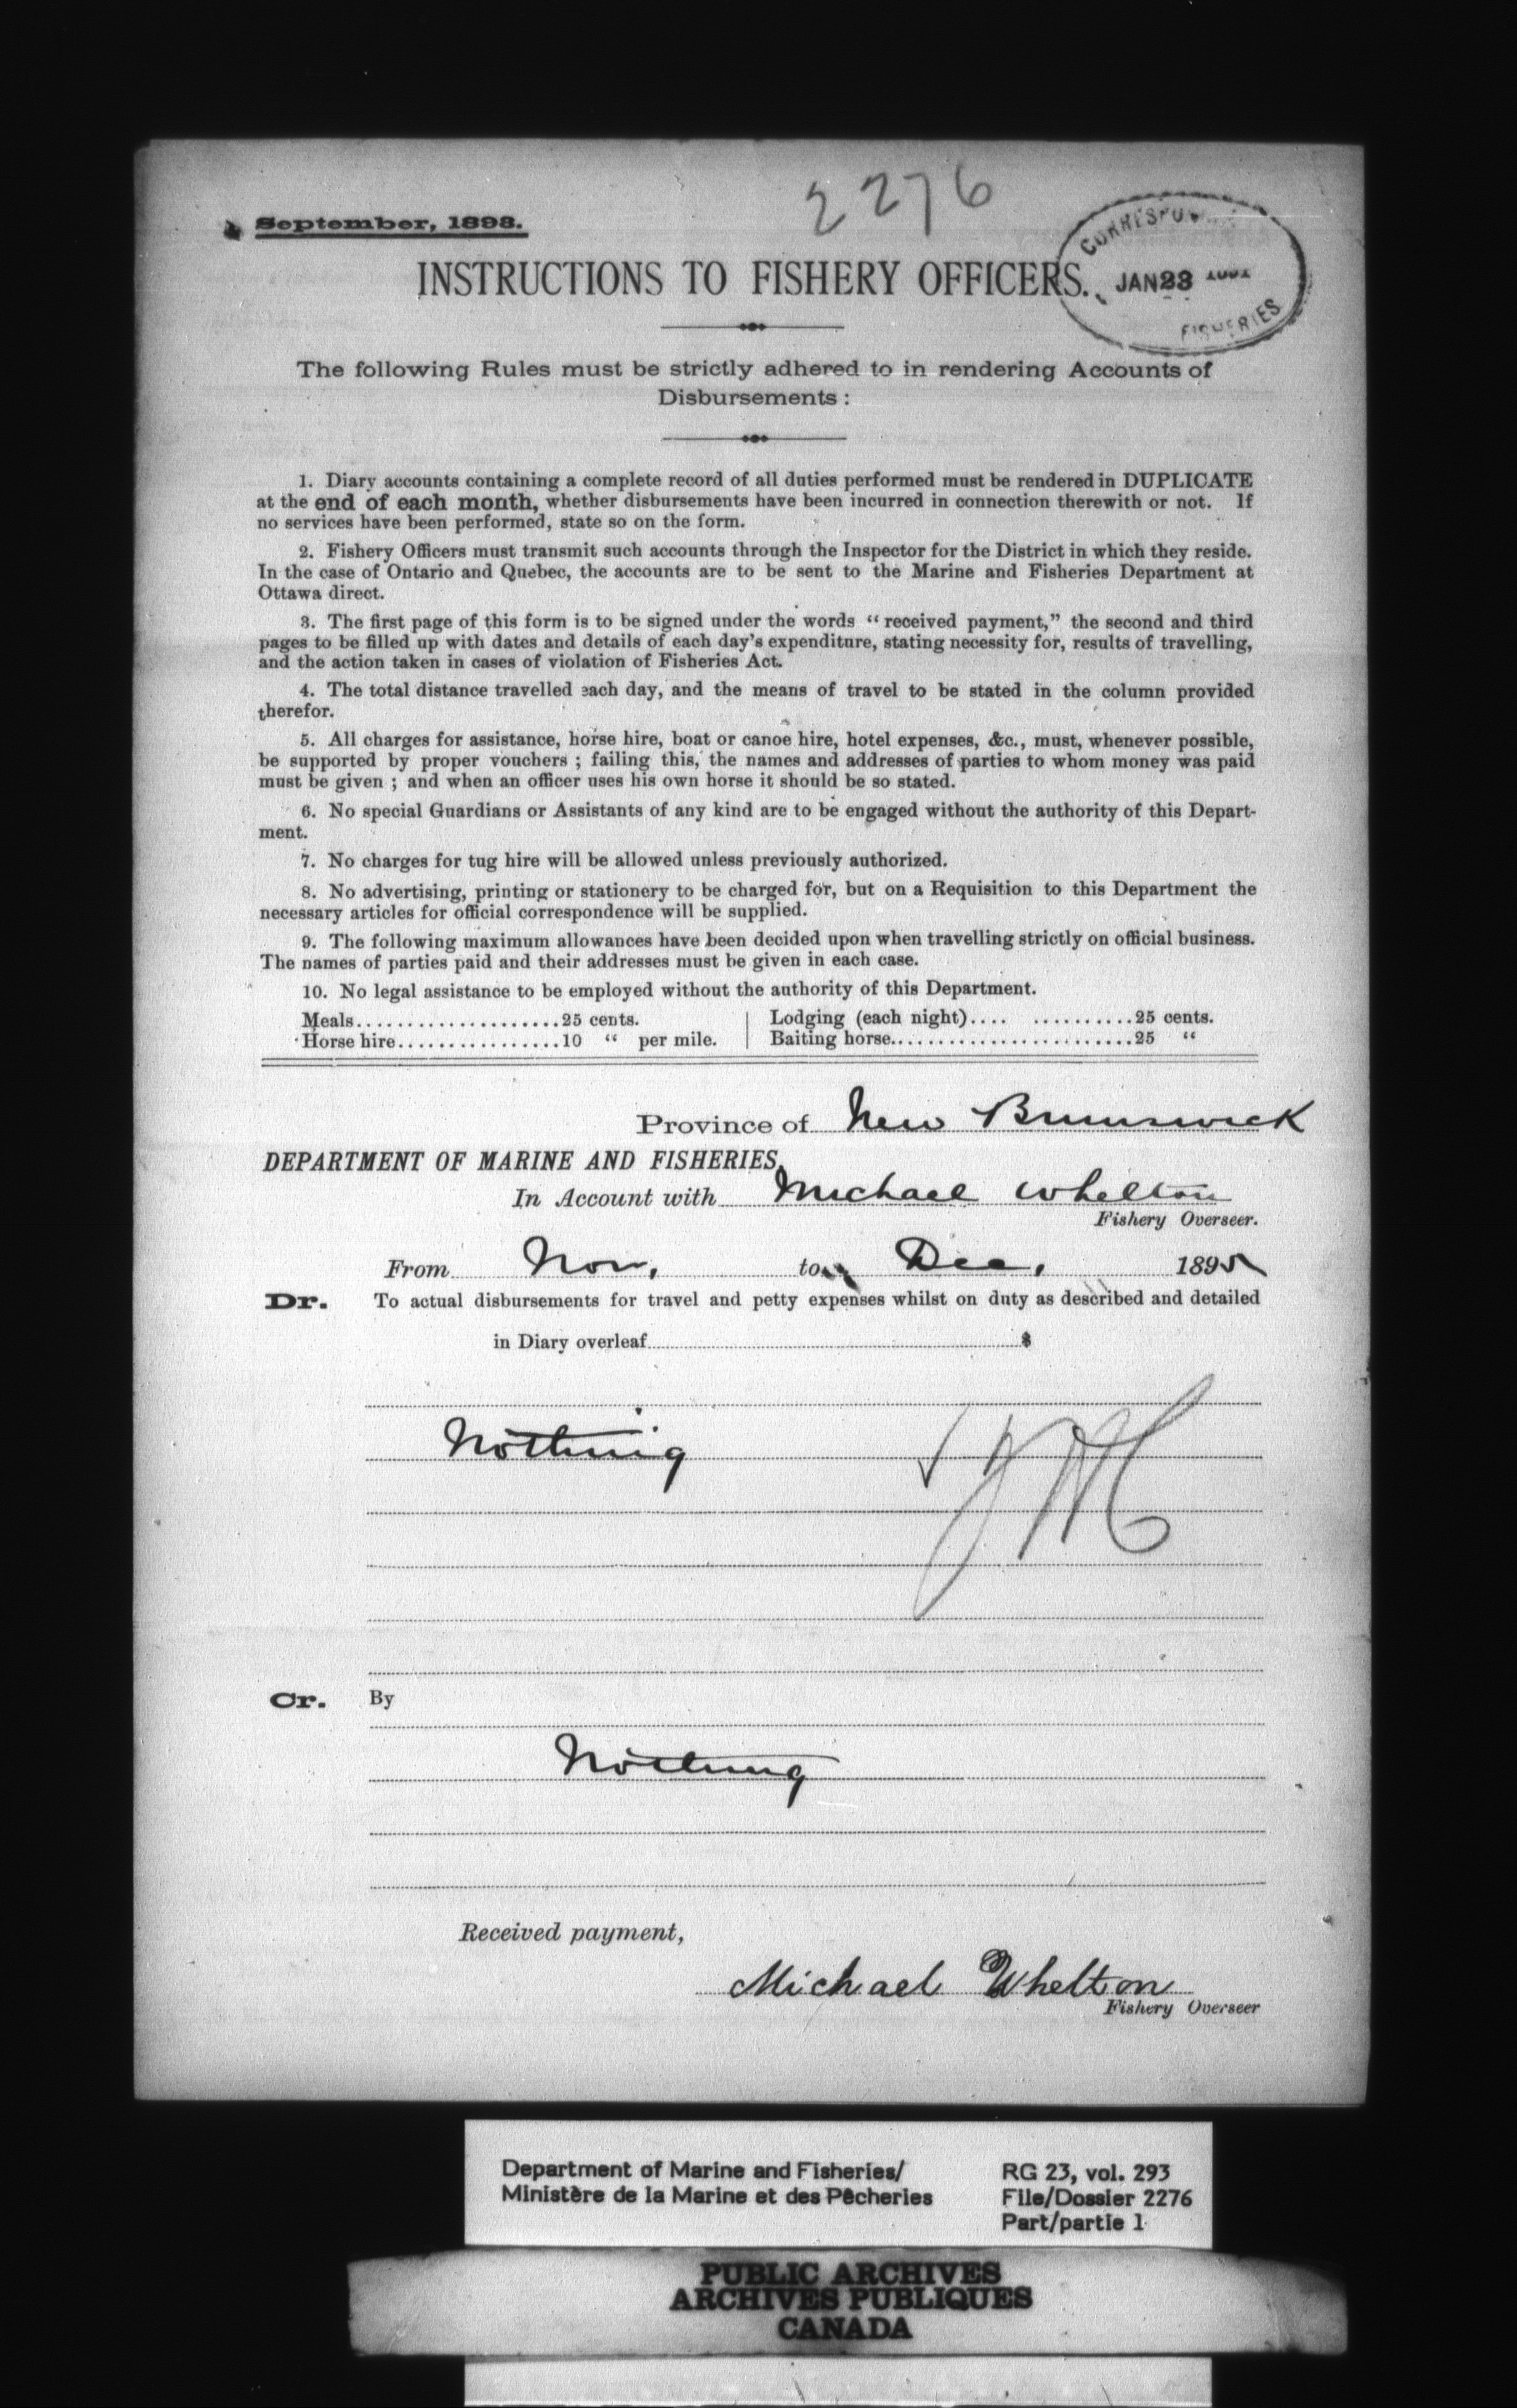 2276
September, 1893.
CORRESPON
JAN 23
FISHERIES
INSTRUCTIONS TO FISHERY OFFICERS.
The following Rules must be strictly adhered to in rendering Accounts of
Disbursements :
1. Diary accounts containing a complete record of all duties performed must be rendered in DUPLICATE
at the end of each month, whether disbursements have been incurred in connection therewith or not. If
no services have been performed, state so on the form.
2. Fishery Officers must transmit such accounts through the Inspector for the District in which they reside.
In the case of Ontario and Quebec, the accounts are to be sent to the Marine and Fisheries Department at
Ottawa direct.
3. The first page of this form is to be signed under the words “ received payment,” the second and third
pages to be filled up with dates and details of each day's expenditure, stating necessity for, results of travelling,
and the action taken in cases of violation of Fisheries Act.
4. The total distance travelled each day, and the means of travel to be stated in the column provided
therefor.
5. All charges for assistance, horse hire, boat or canoe hire, hotel expenses, &c., must, whenever possible,
be supported by proper vouchers ; failing this, the names and addresses of parties to whom money was paid
must be given ; and when an officer uses his own horse it should be so stated.
6. No special Guardians or Assistants of any kind are to be engaged without the authority of this Depart-
ment.
7. No charges for tug hire will be allowed unless previously authorized.
8. No advertising, printing or stationery to be charged for, but on a Requisition to this Department the
necessary articles for official correspondence will be supplied.
9. The following maximum allowances have been decided upon when travelling strictly on official business.
The names of parties paid and their addresses must be given in each case.
10. No legal assistance to be employed without the authority of this Department.
Meals....................25 cents. Lodging (each night).... ..........25 cents.
Horse hire................10 “ per mile. Baiting horse........................25 “
Province of New Brunswick
DEPARTMENT OF MARINE AND FISHERIES,
In Account with Michael Whelton
Fishery Overseer.
From Nov, to Dec, 1895
Dr. To actual disbursements for travel and petty expenses whilst on duty as described and detailed
in Diary overleaf $
Nothing
Cr. By
Nothing
Received payment,
Michael Whelton
Fishery Overseer
Department of Marine and Fisheries/
Ministère de la Marine et des Pêcheries
RG 23, vol. 293
File/Dossier 2276
Part/partie 1
PUBLIC ARCHIVES
ARCHIVES PUBLIQUES
CANADA